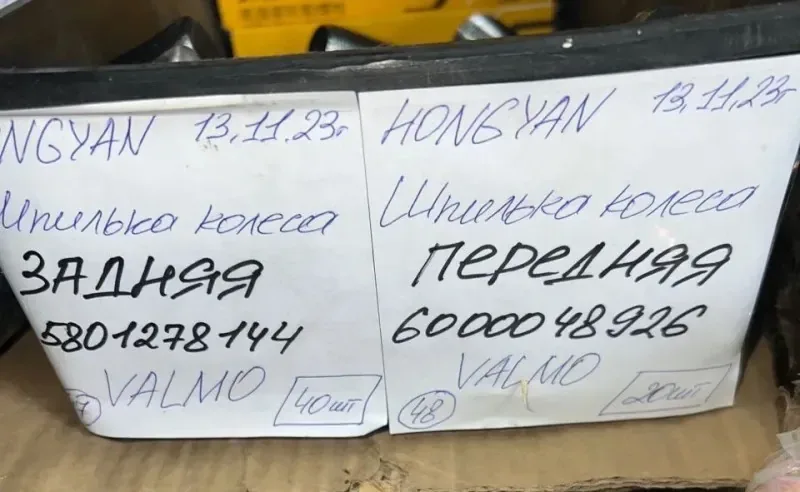 NGYAN 13.11.23г
Шпилька колеса
ЗАДНЯЯ
5801278144
7 VALMO 40шт
HONGYAN 13.11.23г
Шпилька колеса
ПЕРЕДНЯЯ
6000048926
48 VALMO 20шт